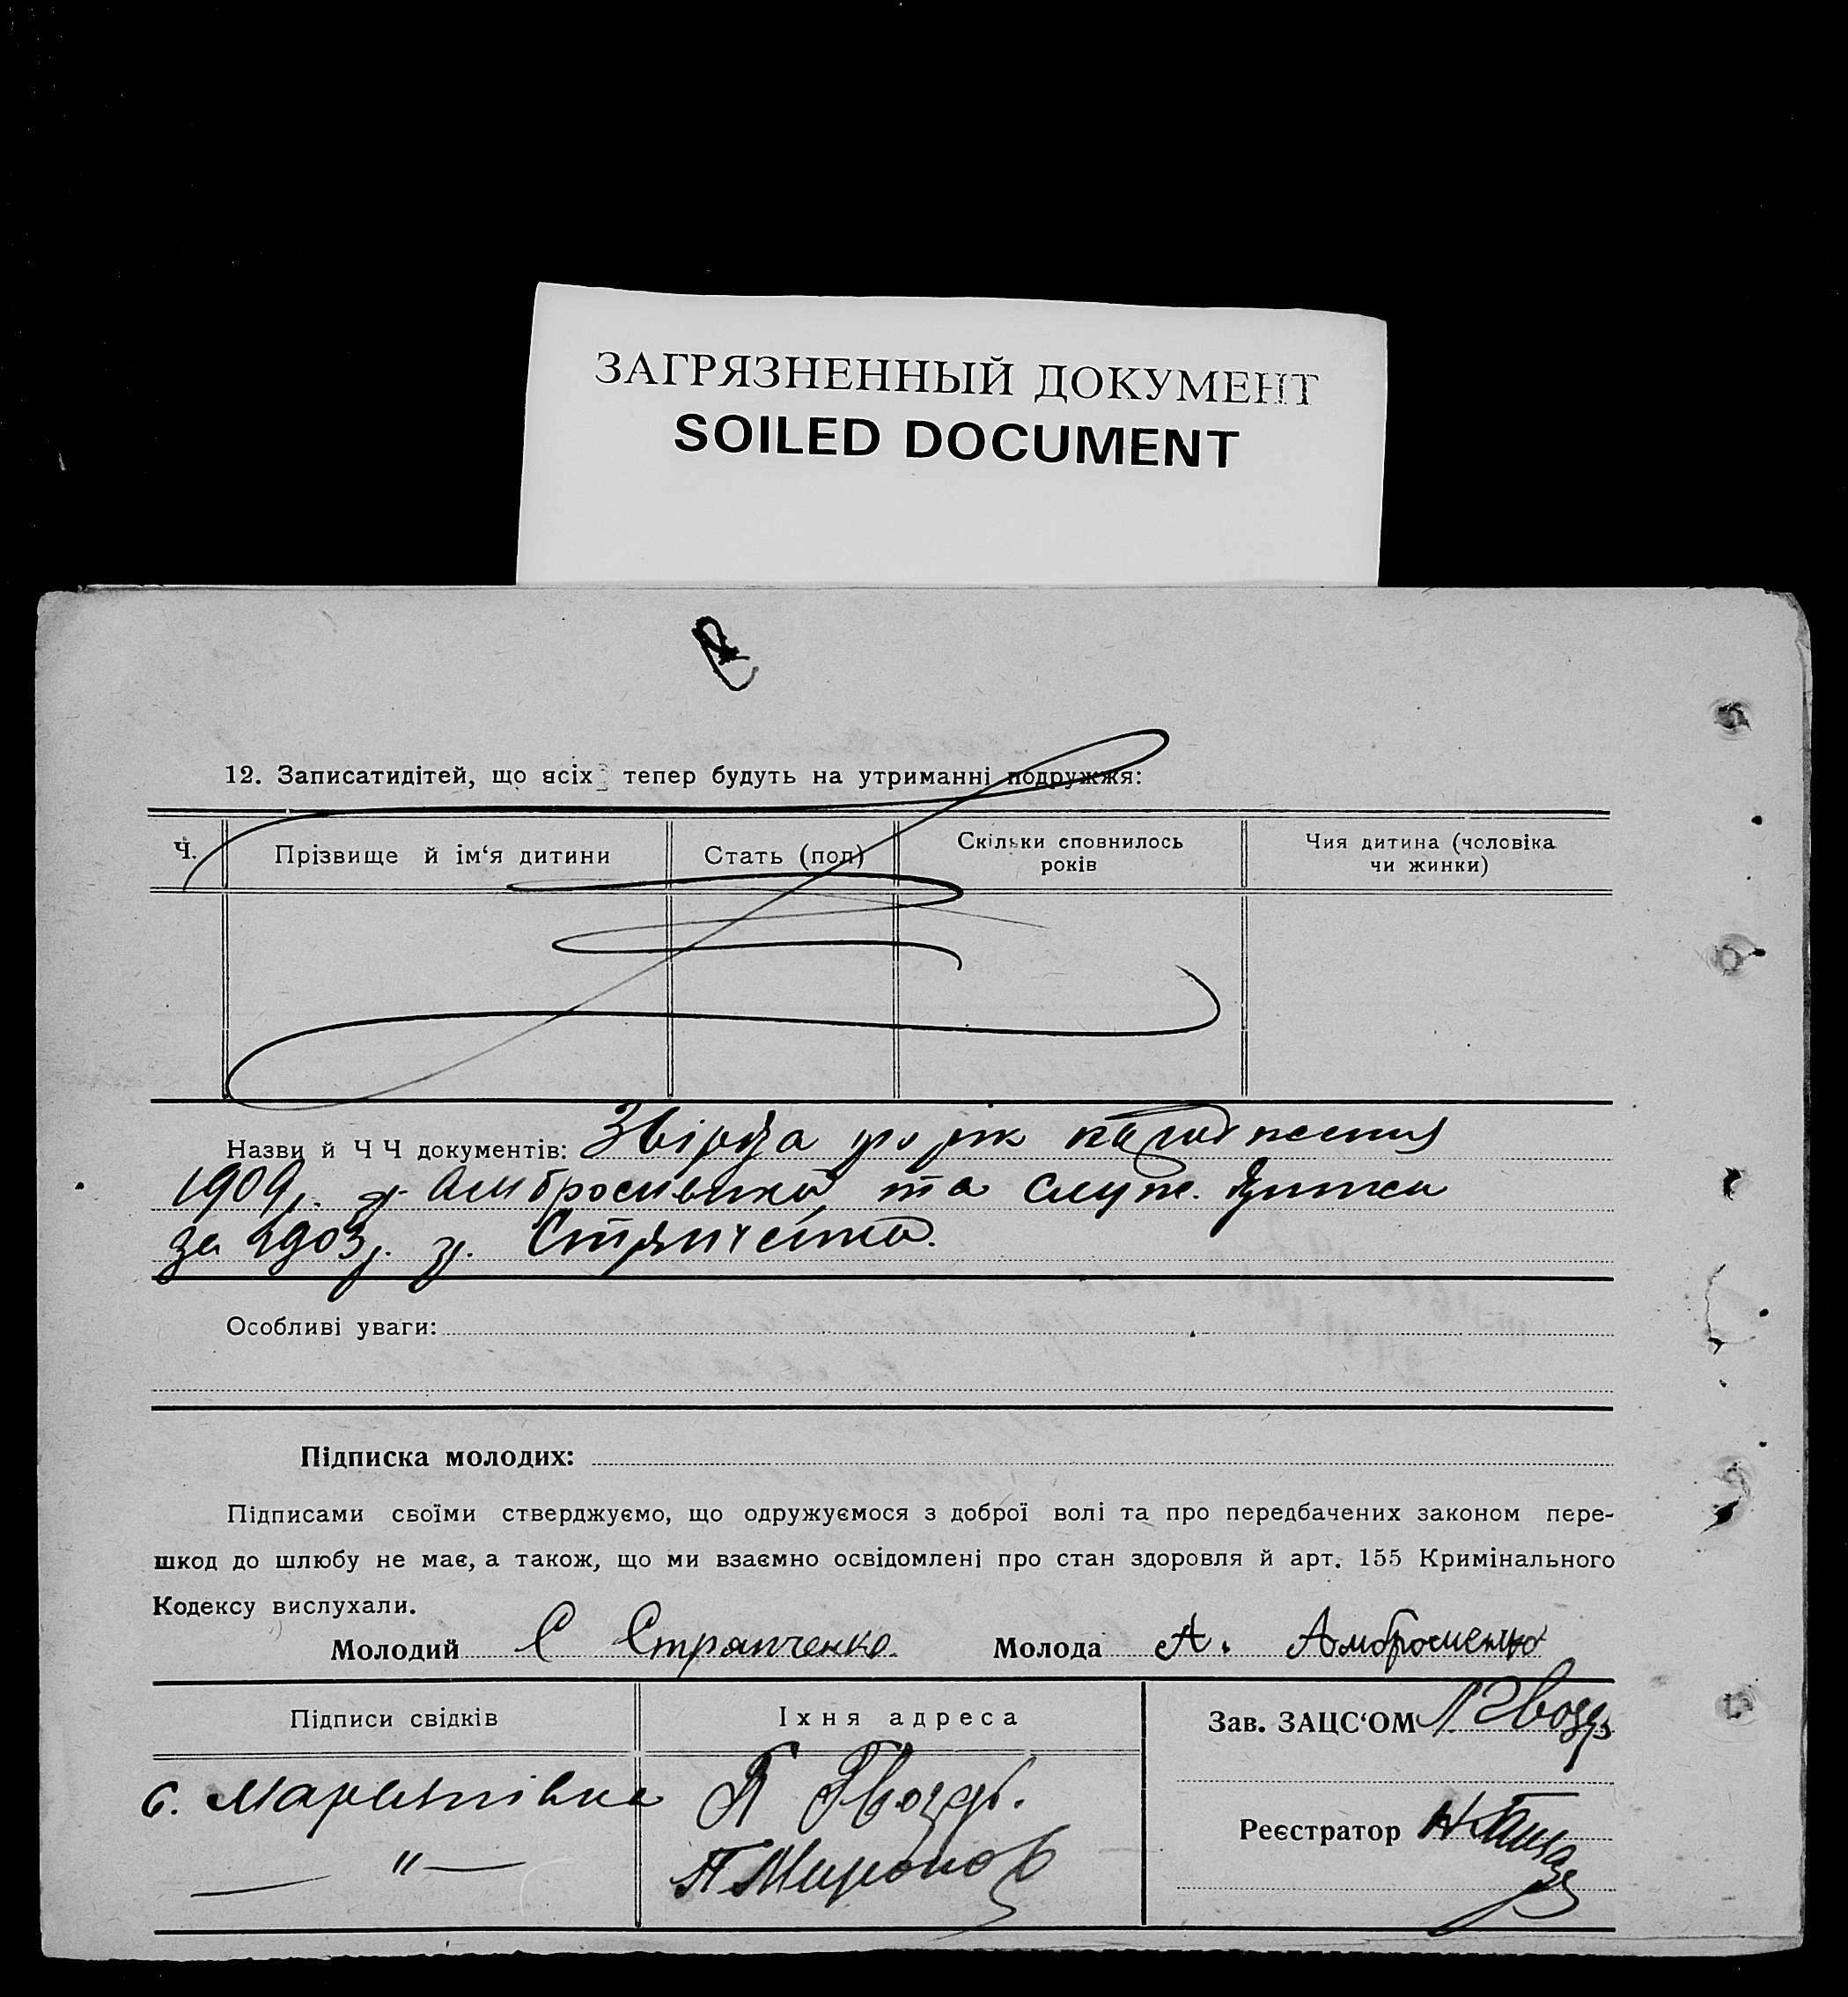 ЗАГРЯЗНЕННЫЙ ДОКУМЕНТ
SOILED DOCUMENT
12. Записатидітей, що всіх тепер будуть на утриманні подружжя:
Ч.
Прізвище й ім‘я дитини
Стать (пол)
Скільки сповнилось
років
Чия дитина (чоловіка
чи жинки)
Назви й Ч Ч документів: про рік
1909р. та служ.
за 1903р. гр. Стряпченка.
Особливі уваги:
Підписка молодих:
Підписами своїми стверджуємо, що одружуємося з доброї волі та про передбачених законом пере-
шкод до шлюбу не має, а також, що ми взаємно освідомлені про стан здоровля й арт. 155 Кримінального
Кодексу вислухали.
Молодий С Стряпченко. Молода А. Амбросіенко
Підписи свідків
Їхня адреса
Зав. ЗАЦС‘ОМ Гвоздь
с. П Гвоздь.
— " — П Миронов
Реєстратор